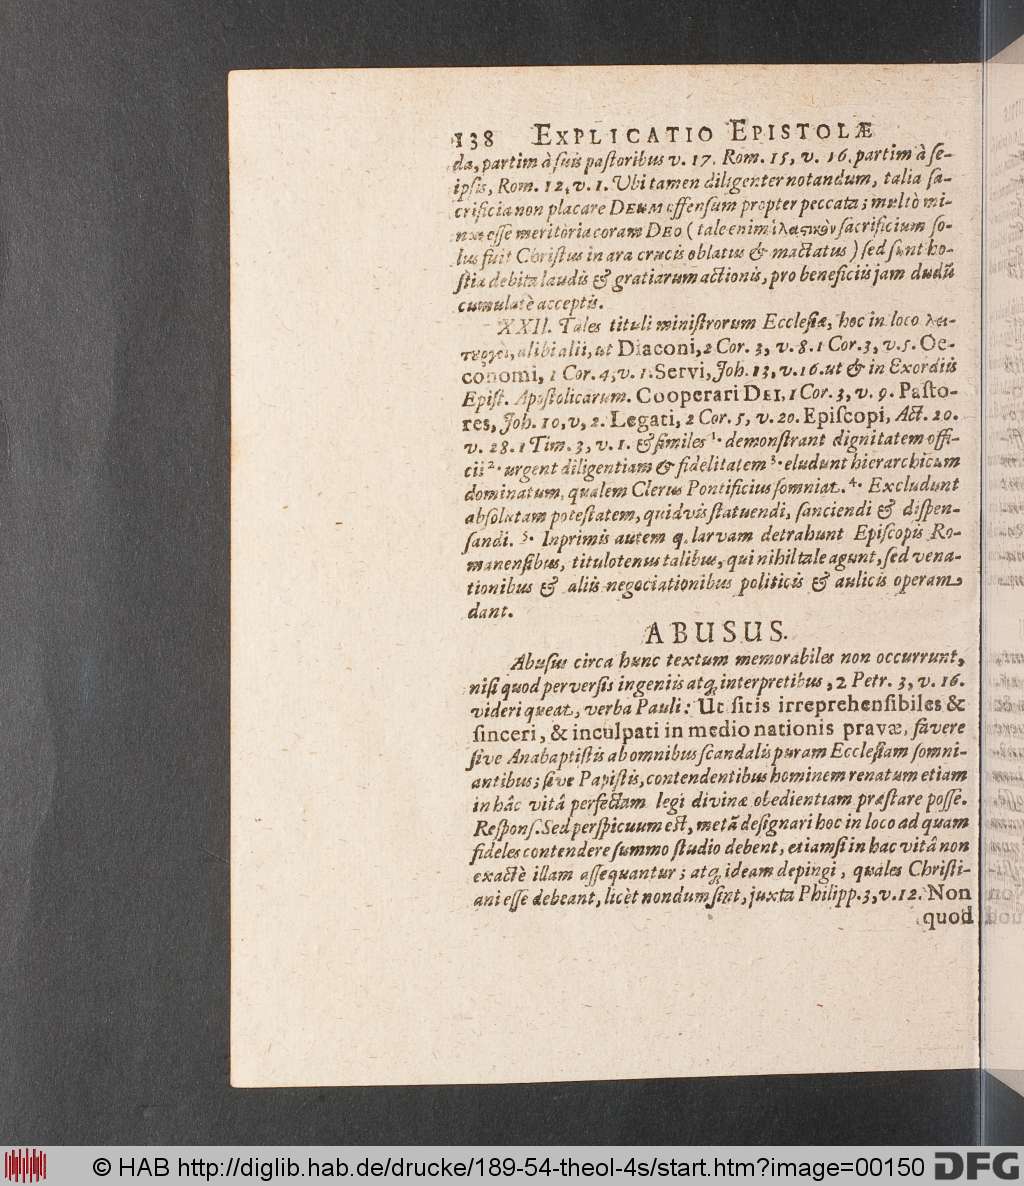 138 EXPLICATIO EPISTOLÆ
da, partim à suis pastoribus v. 17. Rom. 15, v. 16. partim à se-
ipsis, Rom. 12, v. 1. Ubi tamen diligenter notandum, talia sa-
crificia non placare DEUM offensum propter peccata; multò mi-
nus esse meritoria coram DEO (tale enim ἱλαστικὸν sacrificium so-
lus fuit Christus in ara crucis oblatus & mactatus) sed sunt ho-
stia debita laudis & gratiarum actionis, pro beneficiis jam dudū
cumulatè acceptis.
XXII. Tales tituli ministrorum Ecclesiæ, hoc in loco λει-
τεργοὶ, alibi alii, ut Diaconi, 2 Cor. 3, v. 8. 1 Cor. 3, v. 5. Oe-
conomi, 1 Cor. 4, v. 1. Servi, Joh. 13, v. 16. ut & in Exordiis
Epist. Apostolicarum. Cooperari DEI, 1 Cor. 3, v. 9. Pasto-
res, Joh. 10, v, 2. Legati, 2 Cor. 5, v. 20. Episcopi, Act. 20.
v. 28. 1 Tim. 3, v. 1. & similes 1. demonstrant dignitatem offi-
cii 2. urgent diligentiam & fidelitatem 3. eludunt hierarchicum
dominatum, qualem Clerus Pontificius somniat. 4. Excludunt
absolutam potestatem, quidvis statuendi, sanciendi & dispen-
sandi. 5. Inprimis autem q. larvam detrahunt Episcopis Ro-
manensibus, titulotenus talibus, qui nihil tale agunt, sed vena-
tionibus & aliis negociationibus politicis & aulicis operam
dant.
ABUSUS.
Abusus circa hunc textum memorabiles non occurrunt,
nisi quod perversis ingeniis atq; interpretibus, 2 Petr. 3, v. 16.
videri queat, verba Pauli: Ut sitis irreprehensibiles &
sinceri, & inculpati in medio nationis pravæ, favere
sive Anabaptistis ab omnibus scandalis puram Ecclesiam somni-
antibus; sive Papistis, contendentibus hominem renatum etiam
in hâc vitâ perfectam legi divinæ obedientiam præstare posse.
Respons. Sed perspicuum est, metā designari hoc in loco ad quam
fideles contendere summo studio debent, etiamsi in hac vitâ non
exactè illam assequantur; atq; ideam depingi, quales Christi-
ani esse debeant, licèt nondum sint, juxta Philipp. 3, v. 12. Non
quod
© HAB http://diglib.hab.de/drucke/189-54-theol-4s/start.htm?image=00150 DFG